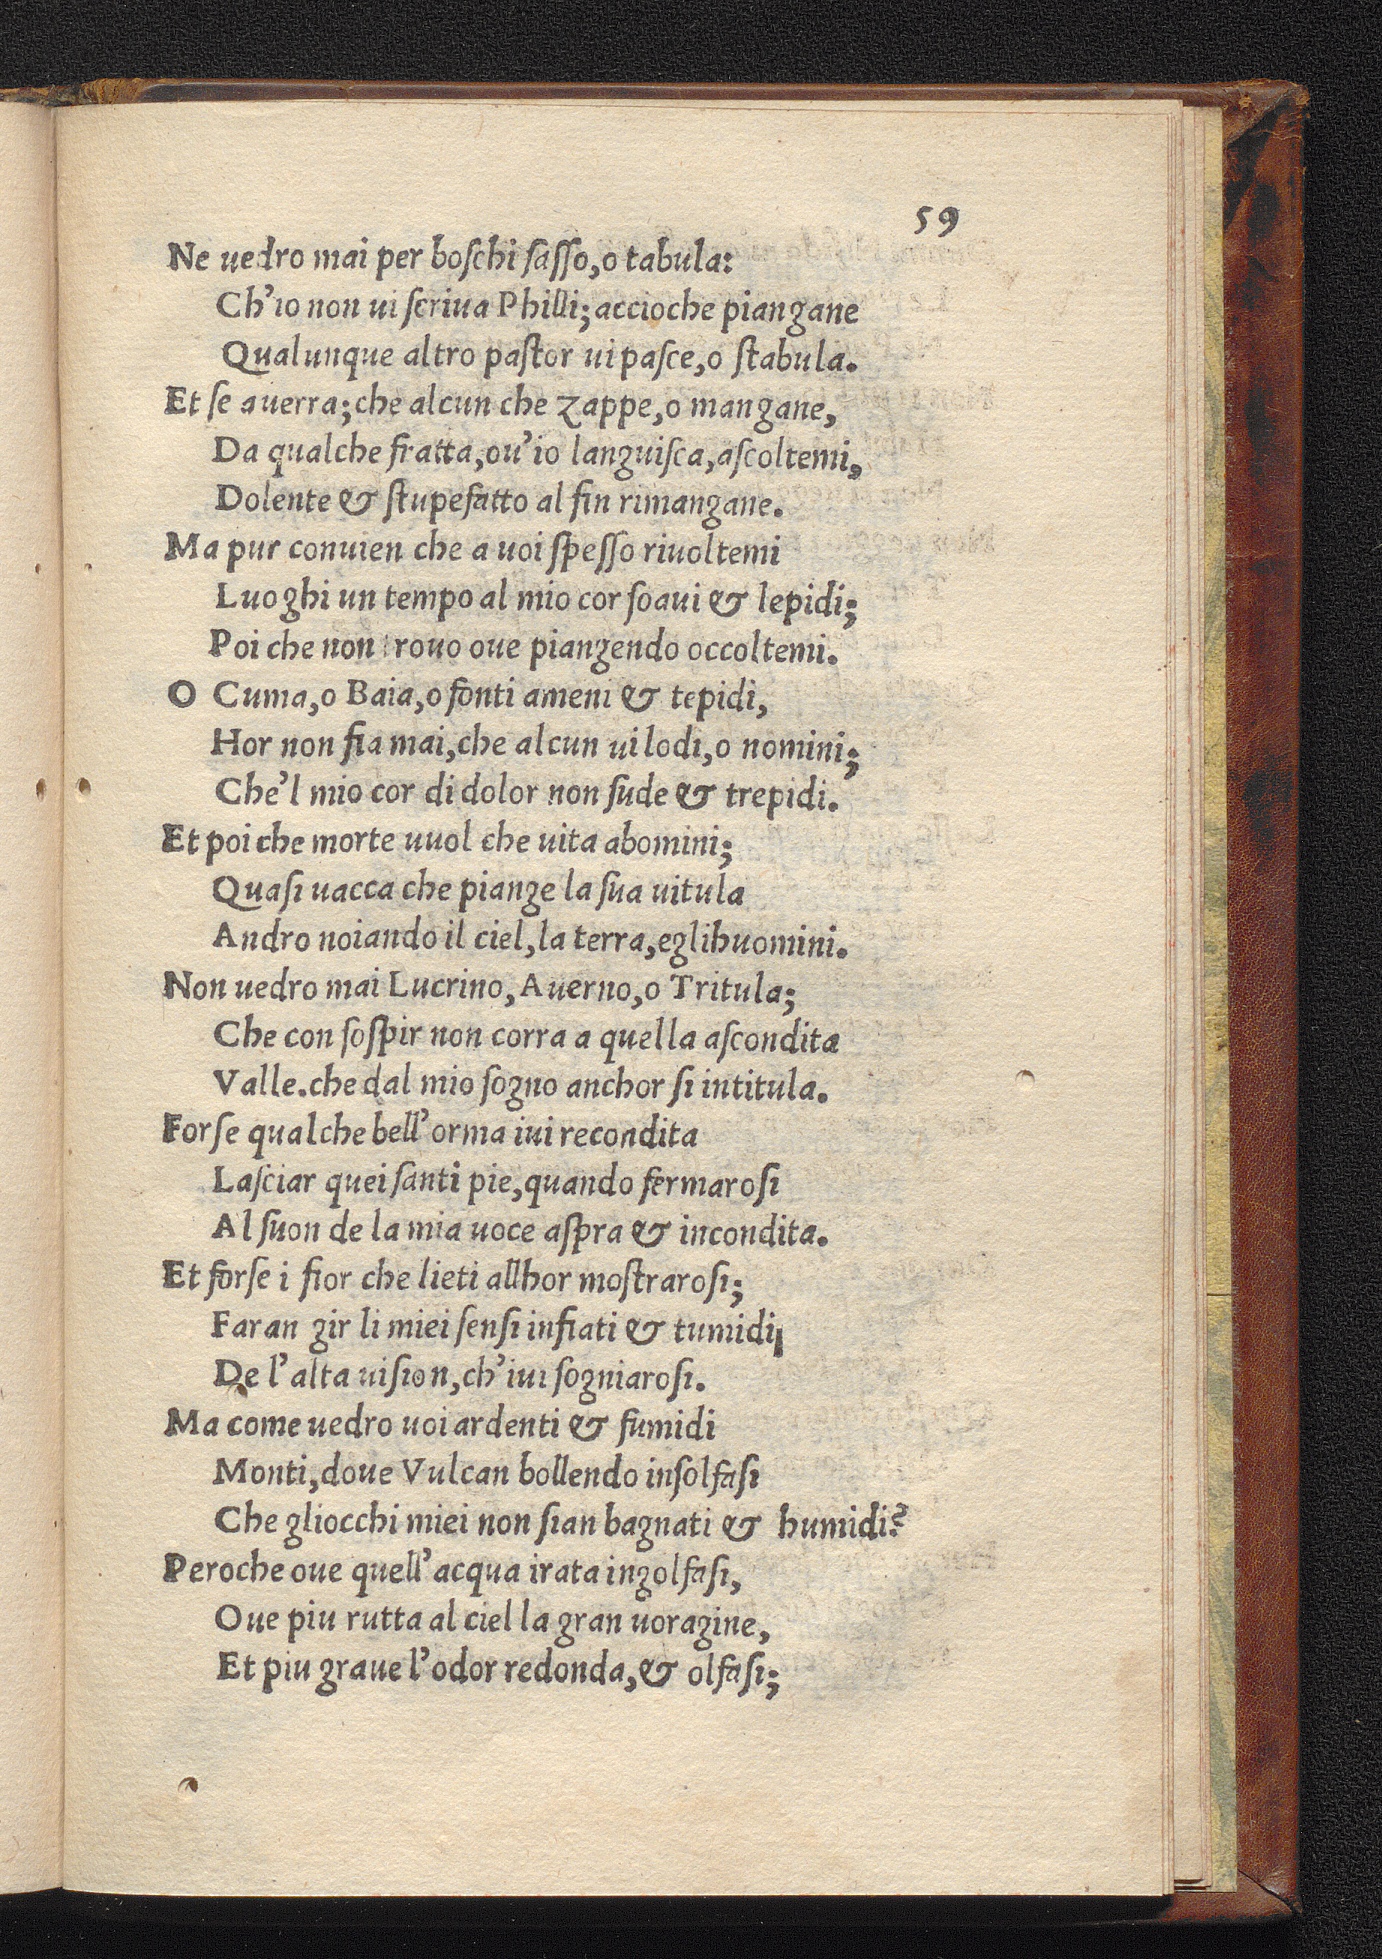 59
Ne uedro mai per boſchi ſaſſo, o tabula:
Ch'io non ui ſcriua Philli; accioche piangane
Qualunque altro paſtor ui paſce, o ſtabula.
Et ſe auerra; che alcun che zappe, o mangane,
Da qualche fratta, ou'io languiſca, aſcoltemi,
Dolente & ſtupefatto al fin rimangane.
Ma pur conuien che a uoi ſpeſſo riuoltemi
Luoghi un tempo al mio cor ſoaui & lepidi;
Poi che non trouo oue piangendo occoltemi.
O Cuma, o Baia, o fonti ameni & tepidi,
Hor non fia mai, che alcun ui lodi, o nomini;
Che'l mio cor di dolor non ſude & trepidi.
Et poi che morte uuol che uita abomini;
Quaſi uacca che piange la ſua uitula
Andro noiando il ciel, la terra, eglihuomini.
Non uedro mai Lucrino, Auerno, o Tritula;
Che con ſoſpir non corra a quella aſcondita
Valle. che dal mio ſogno anchor ſi intitula.
Forſe qualche bell'orma iui recondita
Laſciar quei ſanti pie, quando fermaroſi
Al ſuon de la mia uoce aſpra & incondita.
Et forſe i fior che lieti allhor moſtraroſi;
Faran gir li miei ſenſi infiati & tumidi
De l'alta uiſion, ch'iui ſogniaroſi.
Ma come uedro uoi ardenti & fumidi
Monti, doue Vulcan bollendo inſolfaſi
Che gliocchi miei non ſian bagnati & humidi?
Peroche oue quell'acqua irata ingolfaſi,
Oue piu rutta al ciel la gran uoragine,
Et piu graue l'odor redonda, & olfaſi;